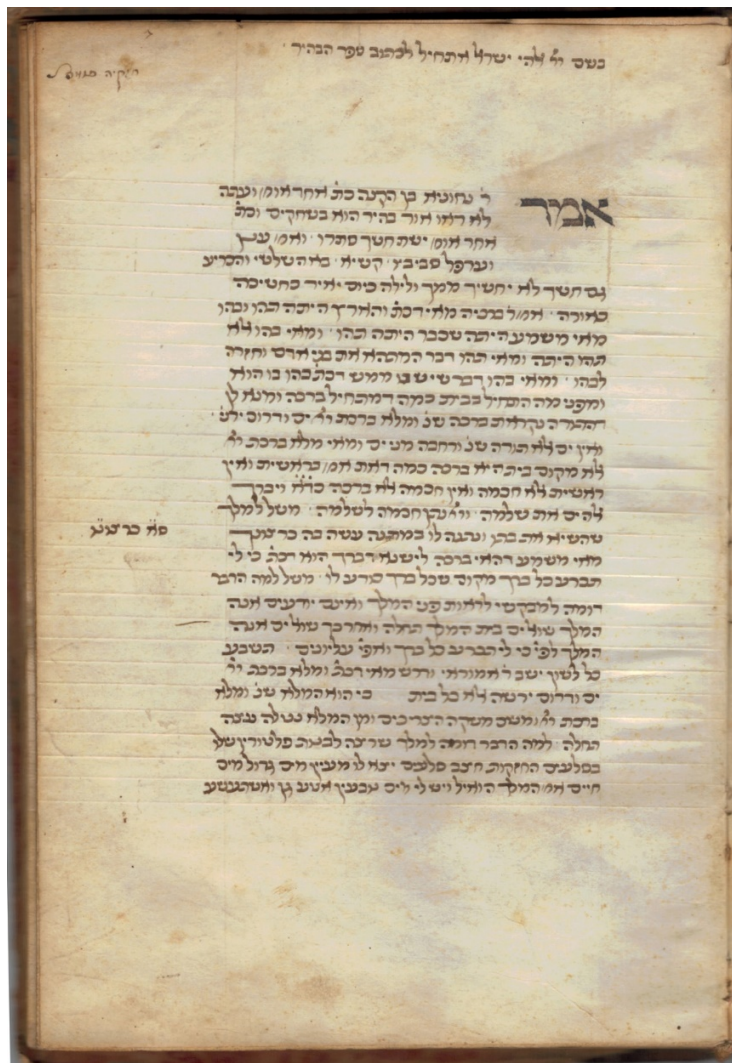 בשם יי אלהי ישראל אתחיל לכתוב ספר הבהיר
אמר ר' נחוניא בן הקנה כת' אחד אומ' ועתה
לא ראו אור בהיר הוא בשחקים וכת'
אחר אומ' ישת חשך סתרו ואומ' ענן
וערפל סביביו קשיא בא השלישי והכריע
גם חשך לא יחשיך ממך ולילה כיום יאיר כחשיכה
כאורה אמ' ר' ברכיה מאי דכת' והארץ היתה תהו ובהו
מאי משמע היתה שכבר היתה תהו ומאי בהו אלא
תהו היתה ומאי תהו דבר המתהא את בני אדם וחזרה
לבהו ומאי בהו דבר שיש בו ממש דכת' בהו בו הוא
ומפני מה התחיל בבית כמה דמתחיל ברכה ומנא לן
דהתורה נקראת ברכה שנ' ומלא ברכת יי ים ודרום ירש
ואין ים אלא תורה שנ' ורחבה מני ים ומאי מלא ברכת יי
אלא מקום בית היא ברכה כמה דאת אמ' בראשית ואין
ראשית אלא חכמה ואין חכמה אלא ברכה ויברך
אלהים את שלמה ויי נתן חכמה לשלמה משל למלך
שהשיא את בתו ונתנה לו במתנה עשה בה כרצונך
ס"א כרצונו
מאי משמע דהאי ברכה לישנא דברך הוא דכת' כי לי
תכרע כל ברך מקום שכל ברך כורע לו משל למה הדבר
דומה למבקשי לראות פני המלך ואינם יודעים אנה
המלך שואלים בית המלך תחלה ואחר כך שואלים אנה
המלך לפי' כי לי תכרע כל ברך ואפי' עליונים תשבע
כל לשון ישב ר' אמוראי ודרש מאי דכת' ומלא ברכת יי
ים ודרום ירשה אלא כל בית כי הוא המלא שנ' ומלא
ברכת יי ומשם משקה הצריכים ומן המלא נטולה עצה
תחלה למה הדבר דומה למלך שרצה לבנות פלטורין שלו
בסלעים החזקות חצב סלעים יצא לו מעין מים גדול מים
חיים אמ' המלך הואיל ויש לי מים נובעין אטע גן ואשתעשע